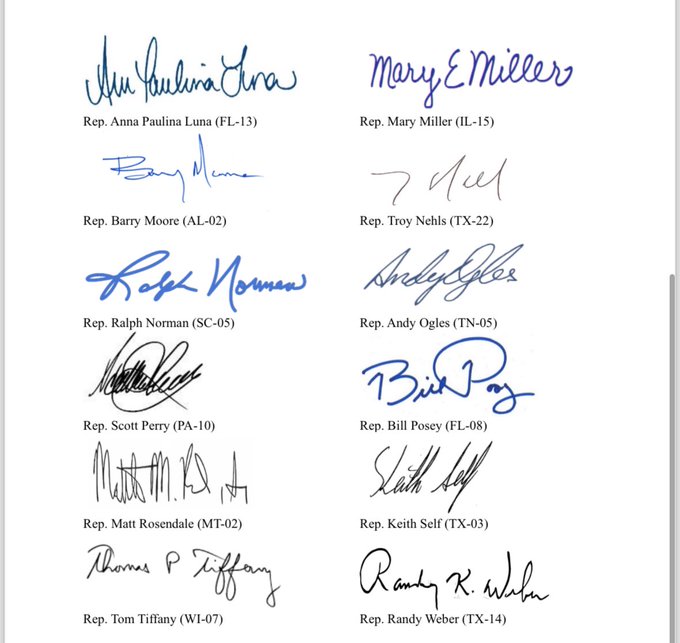 Ann Paulina Luna Mary E Miller
Rep. Anna Paulina Luna (FL-13) Rep. Mary Miller (IL-15)
Barry Moore
Rep. Barry Moore (AL-02) Rep. Troy Nehls (TX-22)
Ralph Norman Andy Ogles
Rep. Ralph Norman (SC-05) Rep. Andy Ogles (TN-05)
Bill Posey
Rep. Scott Perry (PA-10) Rep. Bill Posey (FL-08)
Matt M. Keith Self
Rep. Matt Rosendale (MT-02) Rep. Keith Self (TX-03)
Thomas P Tiffany Randy K. Weber
Rep. Tom Tiffany (WI-07) Rep. Randy Weber (TX-14)